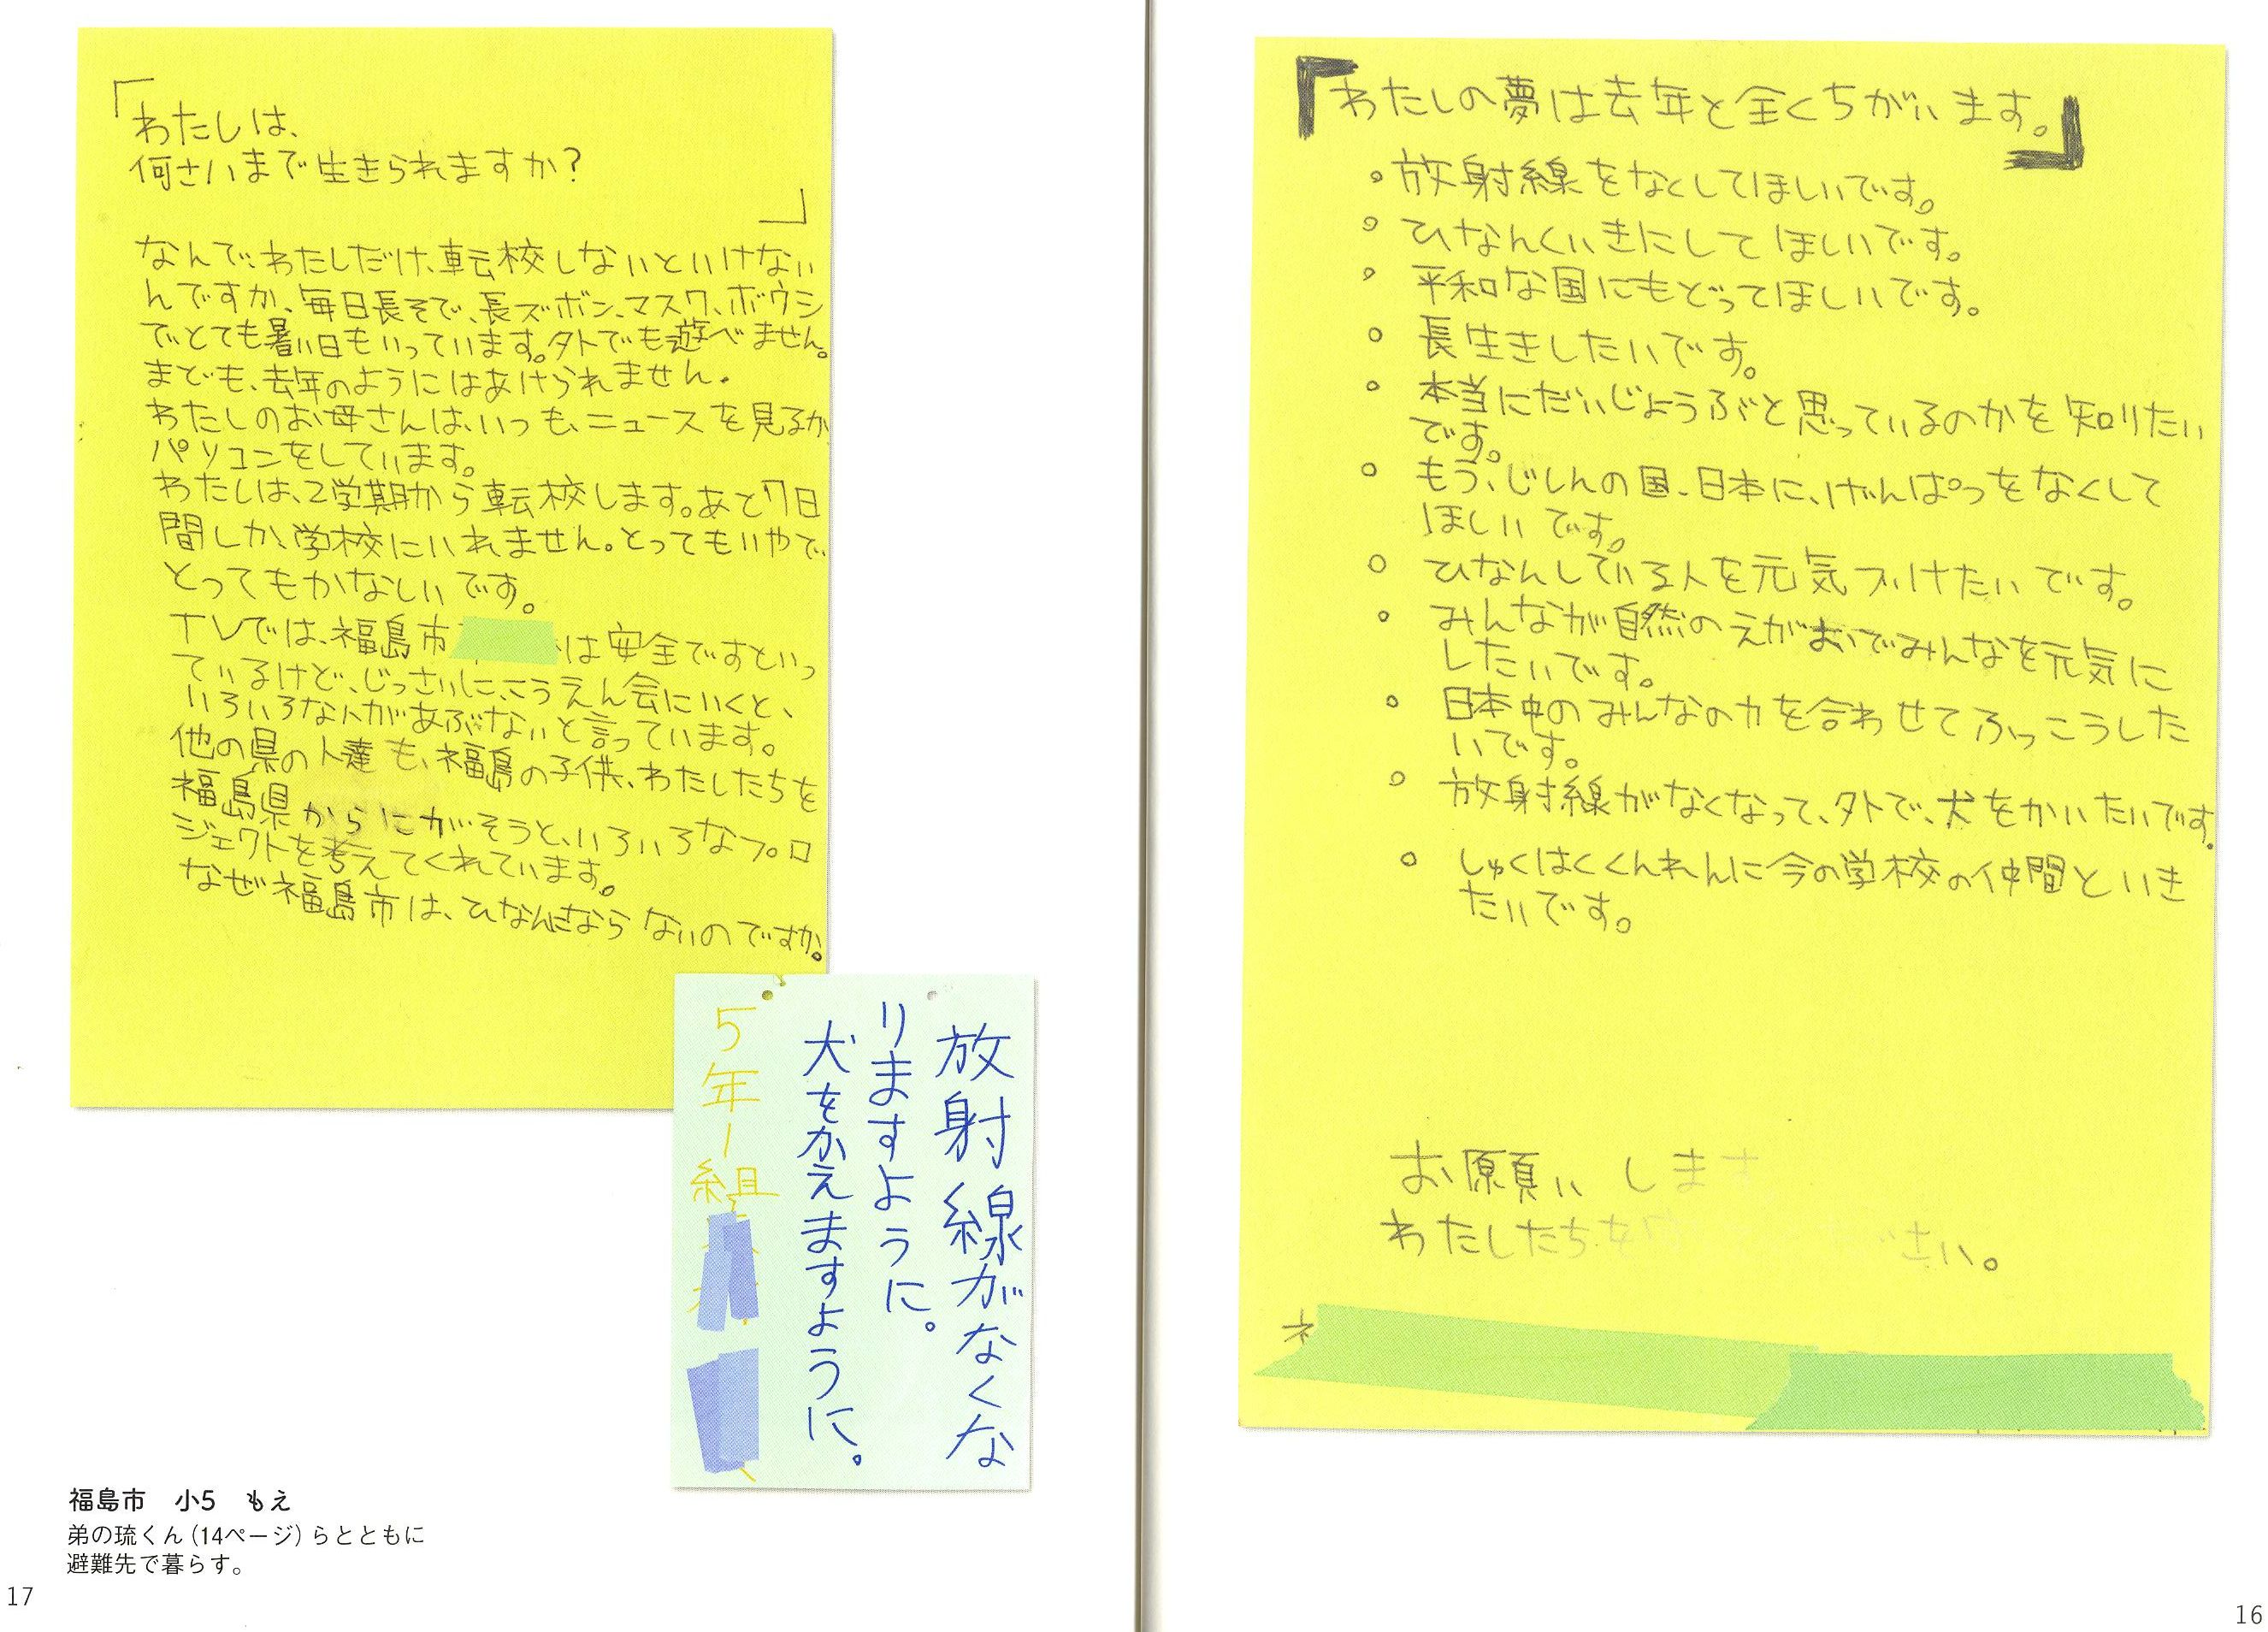 「わたしの夢は去年と全くちがいます。」
。放射線をなくしてほしいです。
。ひなんくいきにしてほしいです。
。平和な国にもどってほしいです。
。長生きしたいです。
。本当にだいじょうぶと思っているのかを知りたい
です。
。もう、じしんの国、日本に、げんぱつをなくして
ほしいです。
。ひなんしている人を元気づけたいです。
。みんなが自然のえがおでみんなを元気に
したいです。
。日本中のみんなの力を合わせてふっこうした
いです。
。放射線がなくなって、外で、犬をかいたいです。
。しゅくはくくんれんに今の学校の仲間といき
たいです。
お願いしま
わたしたちを さい。
ネ
16
「わたしは、
何さいまで生きられますか?
」
なんで、わたしだけ、転校しないといけない
んですか、毎日長そで、長ズボン、マスク、ボウシ
でとても暑い日もいっています。外でも遊べません。
まども、去年のようにはあけられません。
わたしのお母さんは、いつも、ニュースを見るか
パソコンをしています。
わたしは、2学期から転校します。あと7日
間しか、学校にいれません。とってもいやで、
とってもかなしいです。
ナレでは、福島市 は安全ですといっ
ているけど、じっさいに、こうえん会にいくと、
いろいろな人があぶないと言っています。
他の県の人達も、福島の子供、わたしたちを
福島県からにがそうと、いろいろなプロ
ジェクトを考えてくれています。
なぜ福島市は、ひなんにならないのですか。
放射線がなくな
りますように。
犬をかえますように。
5年1組
福島市 小5 もえ
弟の琉くん(14ページ)らとともに
避難先で暮らす。
17